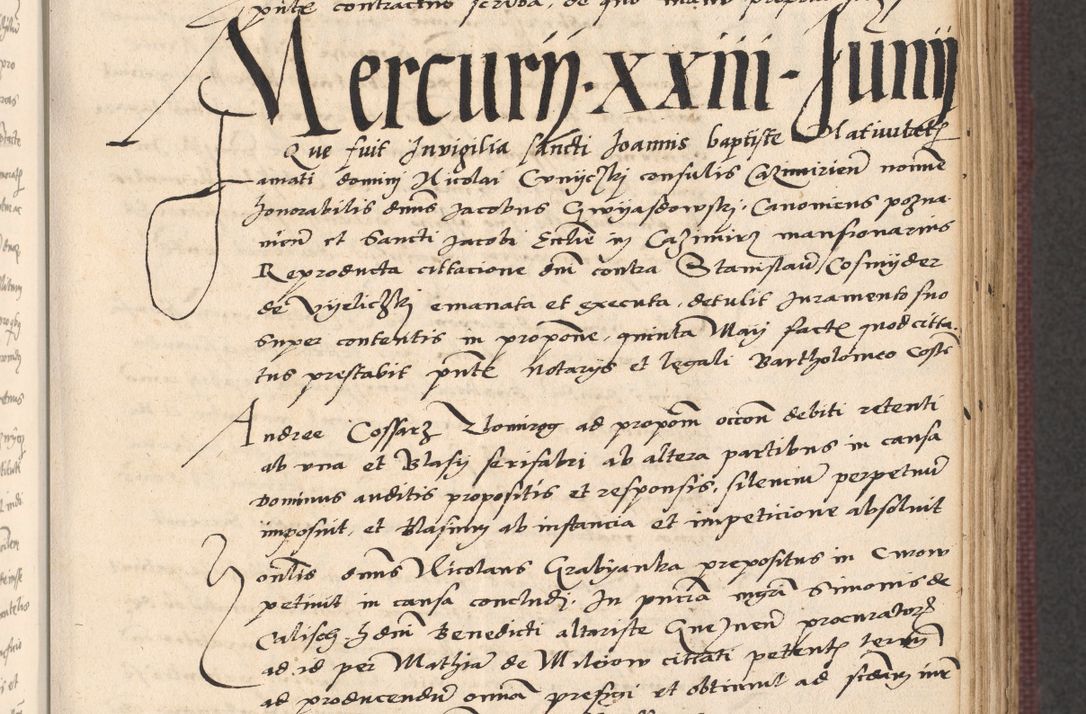 pnte contractus scriba, de quo
Mercurij · xxiii · Junij
Que fuit Invigilia sancti Joannis baptiste Natiuitatis
Famati domini Nicolai consulis Cazimirien nomine
honorabilis dnus Jacobus Gwyasdowskj Canonicus pozna
nien et Sancti Jacobi Ecclie in Cazimirz mansionarius
Reproducta cittacione dni contra Stanislaum Cosmyder
de Vyeliczkj emanata et executa, detulit Juramento suo
super contentis in propone, quinta Maij facte quod citta
tus prestabit pnte Notarijs et legali Bartholomeo
Andree Cossarz ad proponem occon debiti retenti
ab vna et Blasij serifabri ab altera partibus in causa
Dominus auditis propositis et responsis, silencium perpetuum
imposuit, et Blasium ab instancia et impeticione absoluit
Honlis dnus Nicolaus Grabyanka prepositus in Cwow
petiuit in causa concludi, In pncia mgri Simonis de
Calisch dni Benedicti altariste Gneznen procuratoris
ad id per Mathiam de Miloow cittati petentis terminum
ad producendum omnia presigi et obtinuit ad